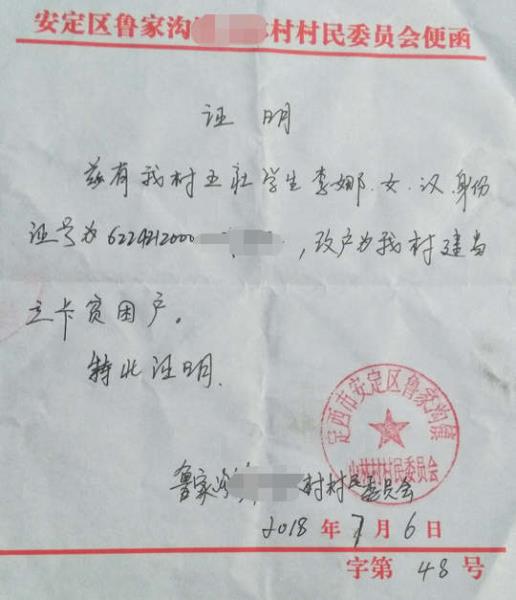 安定区鲁家沟 村村民委员会便函
证明
兹有我村五社学生李娜、女、汉、身份
证号为6224212000 ，该户为我村建档
立卡贫困户。
特此证明.
定西市安定区鲁家沟镇
村村民委员会
鲁家沟 村村民委员会
2018年7月6日
字第48号